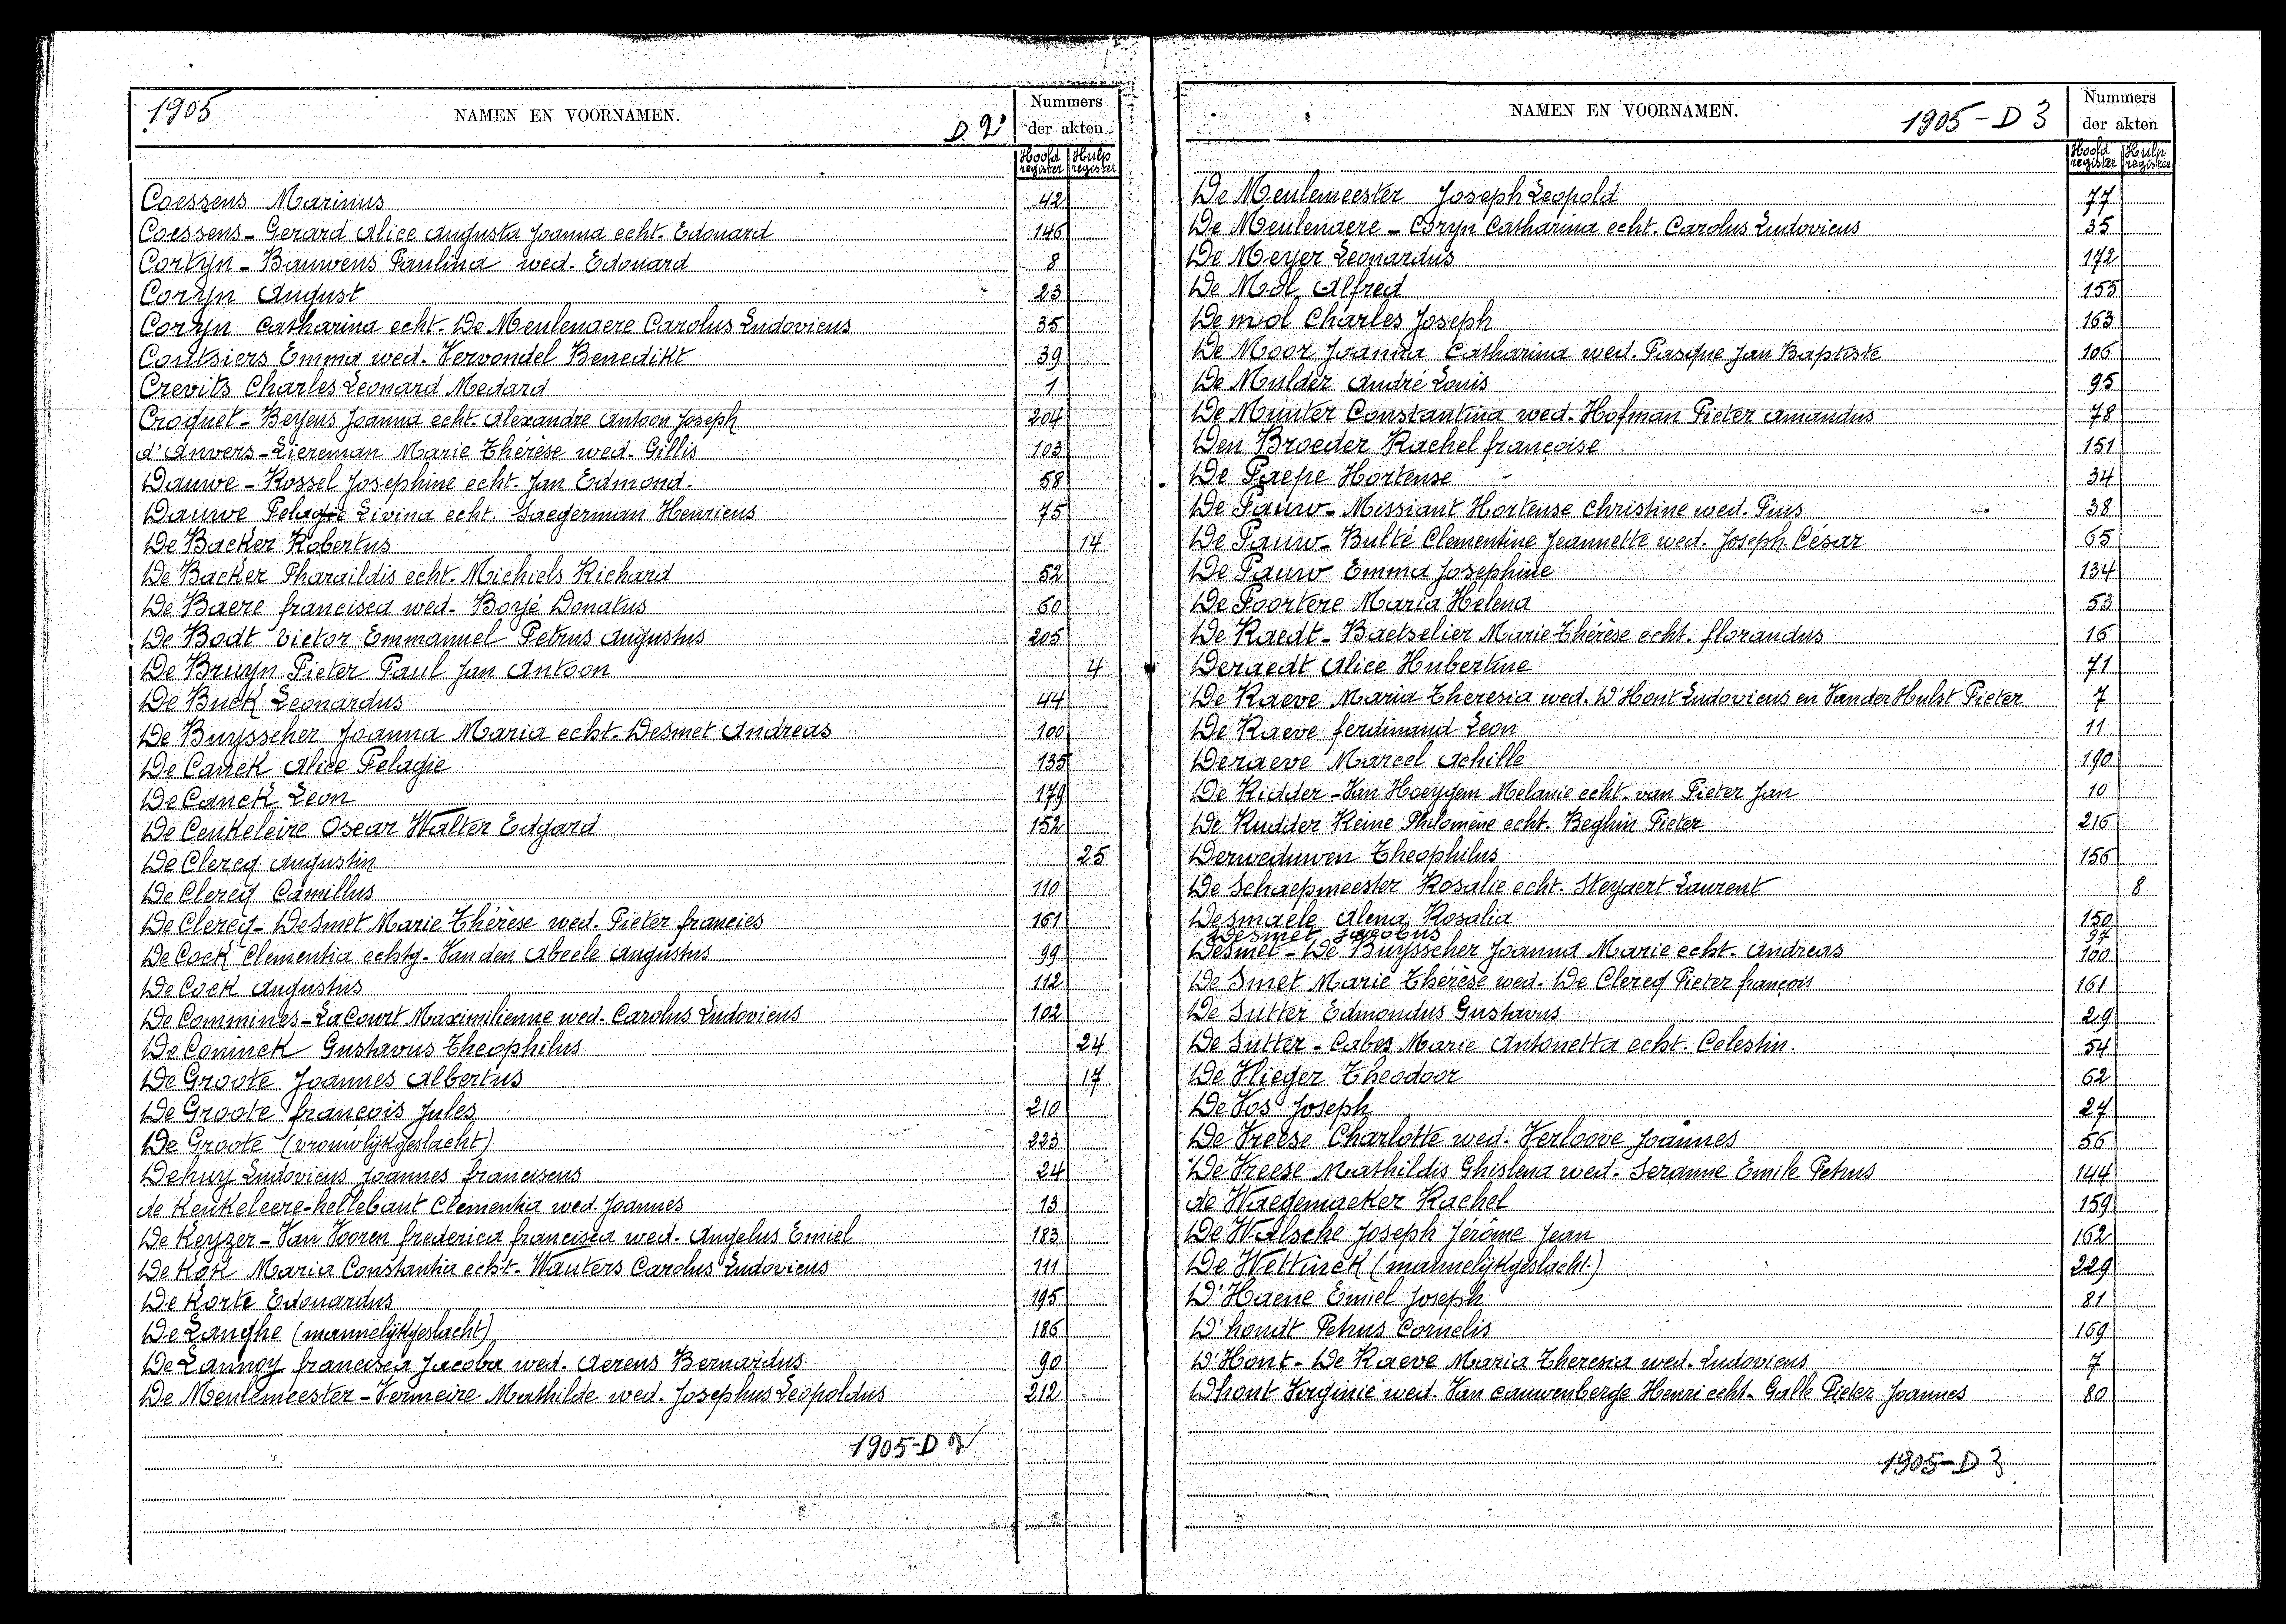 1905 NAMEN EN VOORNAMEN. D. 2 Nummers der akten
Hoofd register Hulp register
Coessens Marinus 42
Coessens - Gerard Alice Augusta Joanna echt. Edouard 146
Cortyn - Bauwens Paulina wed. Edouard 8
Coryn August 23
Coryn Catharina echt. De Meulenaere Carolus Ludovicus 35
Coutsiers Emma wed. Vervondel Benedikt 39
Crevits Charles Leonard Medard 1
Croquet - Beyens Joanna echt. Alexandre Antoon Joseph 204
d'Anvers - Liereman Marie Thérèse wed. Gillis 103
Dauwe - Rossel Josephine echt. Jan Edmond. 58
Dauwe Pelagie Livina echt. Saegerman Henricus 75
De Backer Robertus 14
De Backer Pharaildis echt. Michiels Richard 52
De Baere francisca wed. Boyé Donatus 60
De Bodt Victor Emmanuel Petrus Augustus 205
De Bruyn Pieter Paul Jan Antoon 4
De Buck Leonardus 44
De Buysscher Joanna Maria echt. Desmet Andreas 100
De Canck Alice Pelagie 135
De Canck Leon 179
De Ceukeleire Oscar Walter Edgard 152
De Clercq Augustin 25
De Clercq Camillus 110
De Clercq - DeSmet Marie Thérèse wed. Pieter francies 161
De Cock Clementia echtg. Van den Abeele Augustus 99
De Cock Augustus 112
De Commines - LaCourt Maximilienne wed. Carolus Ludovicus 102
De Coninck Gustavus Theophilus 24
De Groote Joannes Albertus 17
De Groote françois Jules 210
De Groote (vrouwlijkgeslacht) 223
Dehuy Ludovicus Joannes franciscus 24
de Keukeleere - hellebaut Clementia wed. Joannes 13
De Keyzer - Van Vooren frederica francisca wed. Angelus Emiel 183
De Kok Maria Constantia echt. Wauters Carolus Ludovicus 111
De Korte Edouardus 195
De Langhe (mannelijkgeslacht) 186
De Lannoy francisca Jacoba wed. Aerens Bernardus 90
De Meulemeester - Vermeire Mathilde wed. Josephus Leopoldus 212
1905-D 2
NAMEN EN VOORNAMEN. 1905 - D 3 Nummers der akten
Hoofd register Hulp register
De Meulemeester Joseph Leopold 77
De Meulenaere - Coryn Catharina echt. Carolus Ludovicus 35
De Meyer Leonardus 172
De Mol Alfred 155
De mol Charles Joseph 163
De Moor Joanna Catharina wed. Pasque Jan Baptiste 106
De Mulder André Louis 95
De Munter Constantina wed. Hofman Pieter Amandus 78
Den Broeder Rachel françoise 151
De Paepe Hortense 34
De Pauw - Missiant Hortense Christine wed. Pius 38
De Pauw - Bulté Clementine Jeannette wed. Joseph César 65
De Pauw Emma Josephine 134
De Poortere Maria Helena 53
De Raedt - Baetselier Marie Thérèse echt. florandus 16
Deraedt Alice Hubertine 71
De Raeve Maria Theresia wed. D'Hont Ludovicus en Van der Hulst Pieter 7
De Raeve ferdinand Leon 11
Deraeve Marcel Achille 190
De Ridder - Van Hoeygem Melanie echt. van Pieter Jan 10
De Rudder Reine Philomène echt. Beghin Pieter 216
Derweduwen Theophilus 156
De Schaepmeester Rosalie echt. Steyaert Laurent 8
Desmaele Alena Rosalia 150
Desmet Jacobus 97
Desmet - De Buysscher Joanna Marie echt. Andreas 100
De Smet Marie Thérèse wed. De Clercq Pieter françois 161
De Sutter Edmondus Gustavus 29
De Sutter - Cabes Marie Antonetta echt. Celestin. 54
De Vlieger Theodoor 62
De Vos Joseph 27
De Vreese Charlotte wed. Verloove Joannes 56
De Vreese Mathildis Ghislena wed. Seranne Emile Petrus 144
de Waegemaeker Rachel 159
De Walsche Joseph Jérôme Jean 162
De Wettinck (mannelijkgeslacht.) 229
D'Haene Emiel Joseph 81
D'hondt Petrus Cornelis 169
D'Hont - De Raeve Maria Theresia wed. Ludovicus 7
Dhont Virginie wed. Van cauwenberge Henri echt. Galle Pieter Joannes 80
1905-D 3